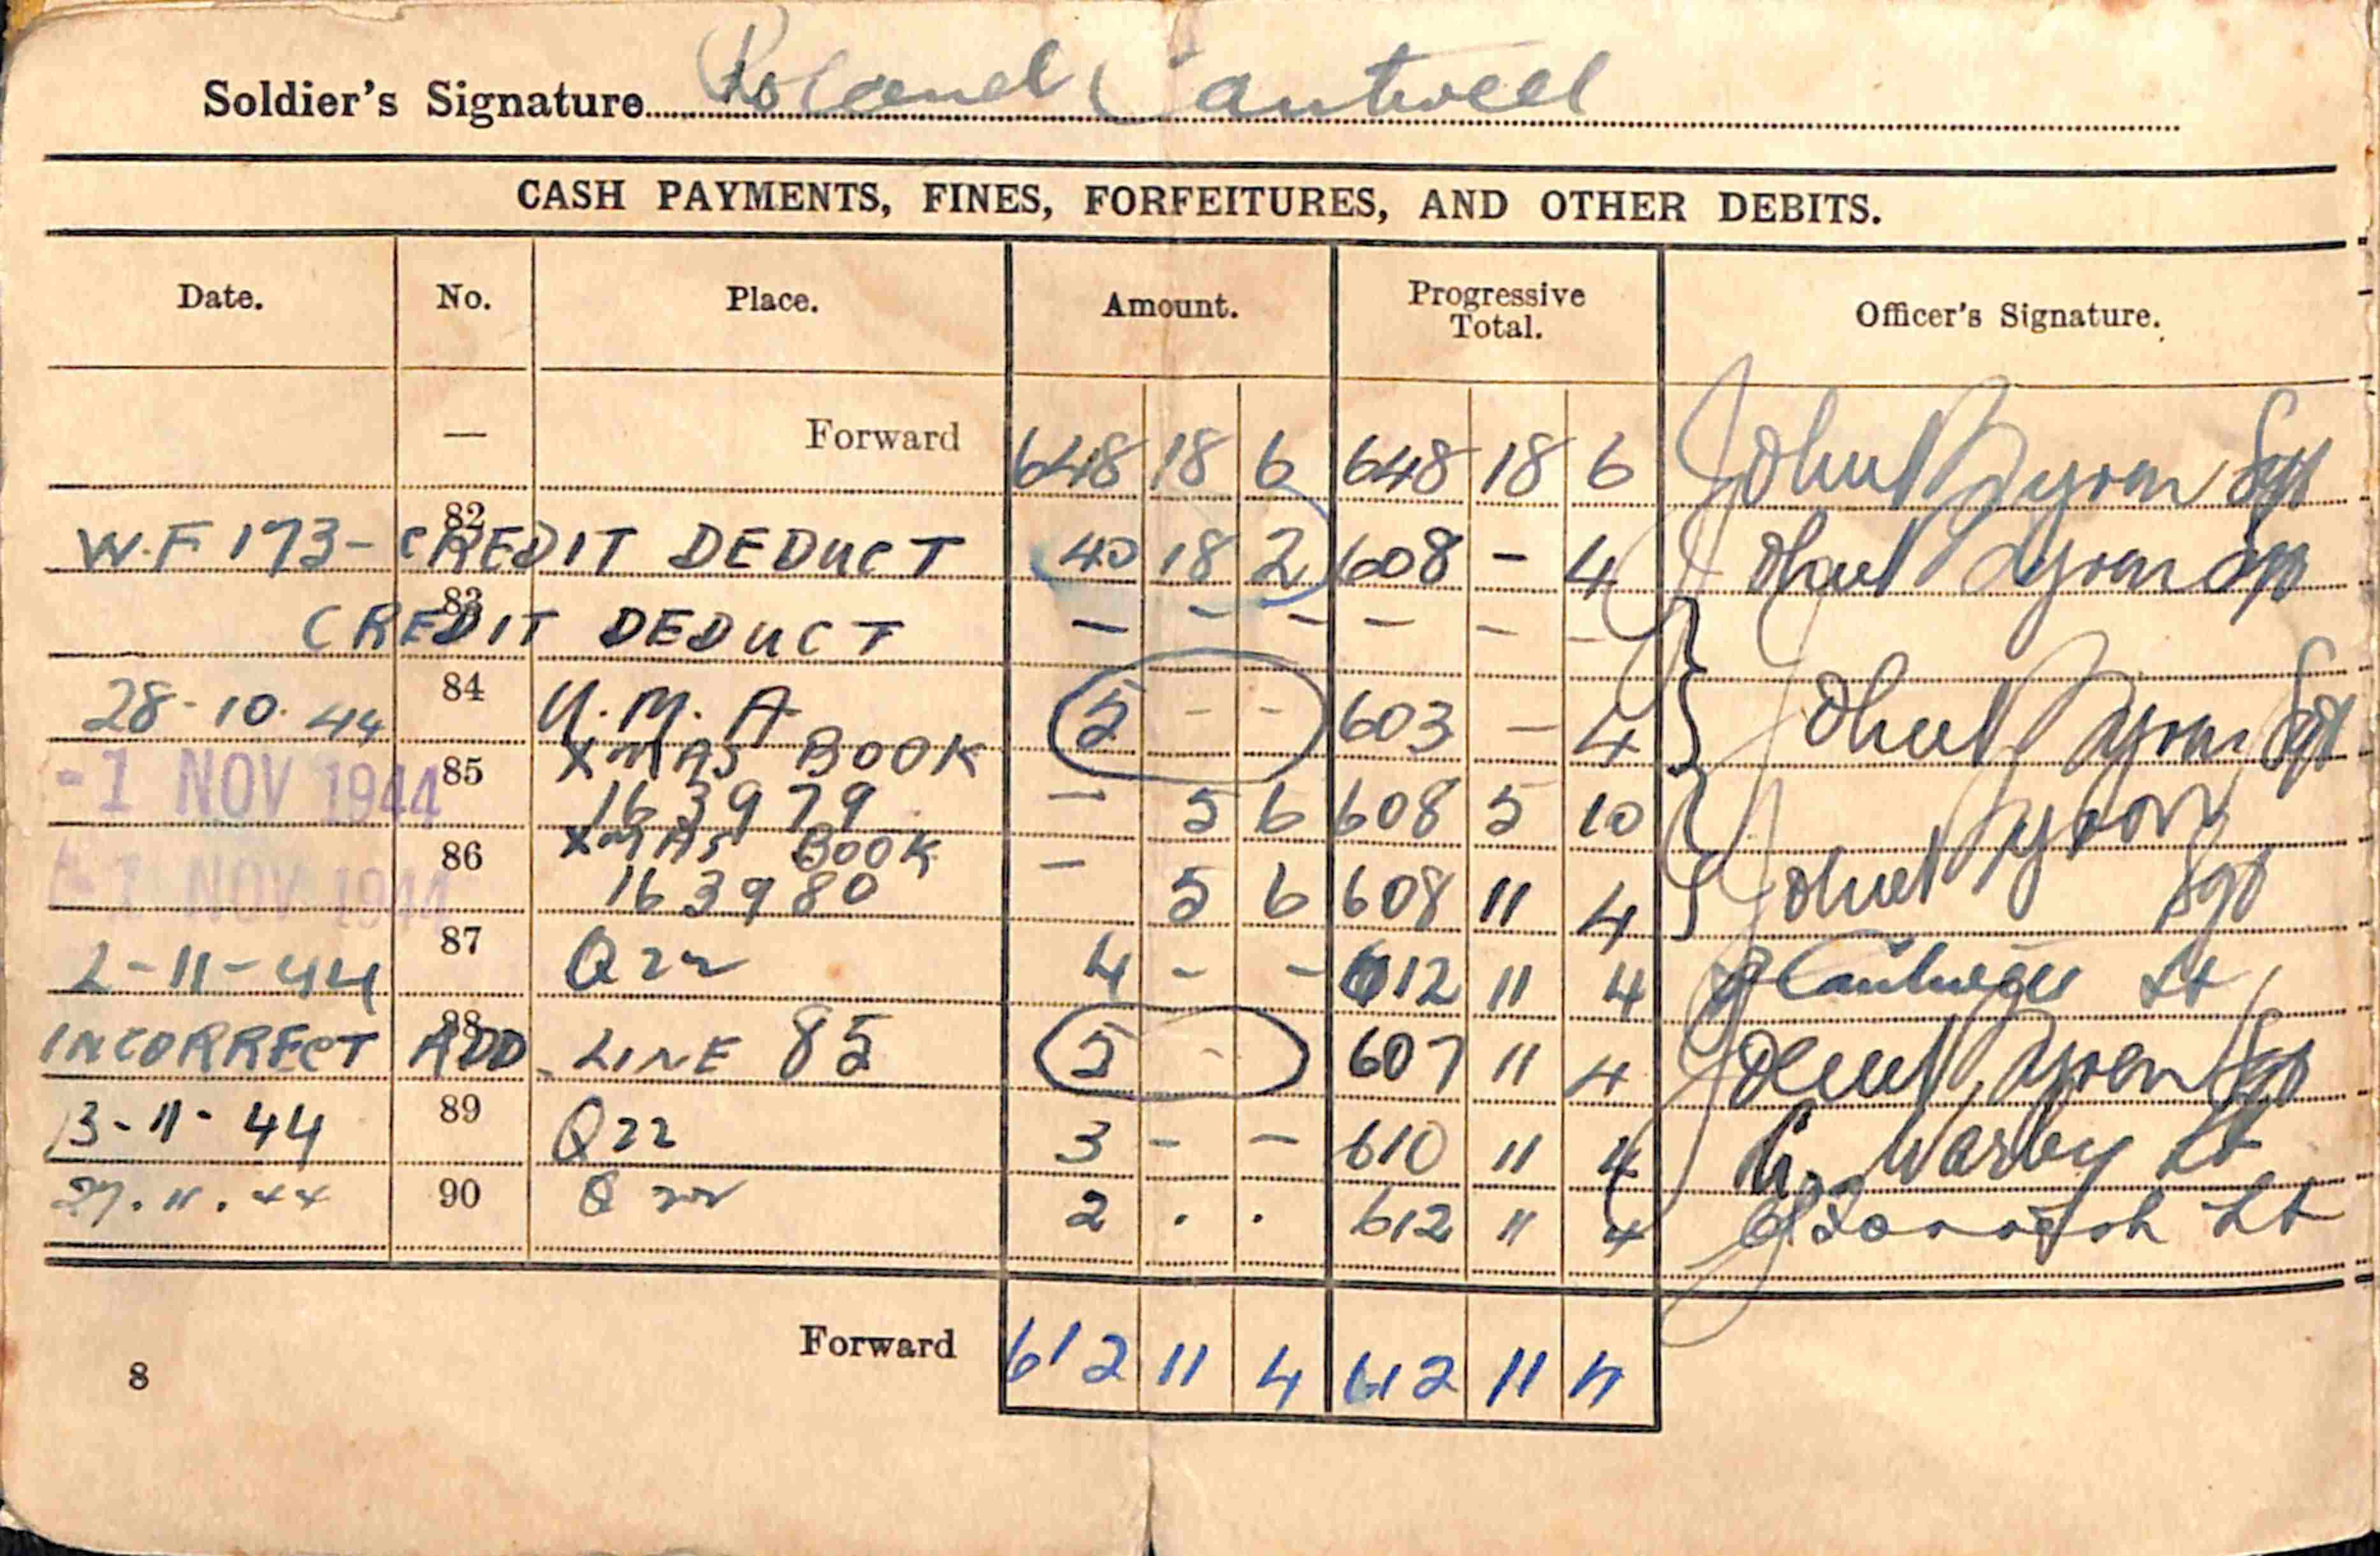 Soldier's Signature Roland Cantwell
CASH PAYMENTS, FINES, FORFEITURES, AND OTHER DEBITS.
Date. No. Place. Amount. Progressive Total. Officer's Signature.
— Forward 648 18 6 648 18 6 John Sgt
W.F 173- 82 CREDIT DEDUCT 40 18 2 608 - 4 John Sgt
83 CREDIT DEDUCT - - - - - -
28-10-44 84 U.M.A 5 - - 603 - 4 John Sgt
-1 NOV 1944 85 XMAS BOOK
163979 - 5 6 608 5 10
-1 NOV 1944 86 XMAS BOOK
163980 - 5 6 608 11 4 John Sgt
2-11-44 87 Q22 4 - - 612 11 4 Lt
INCORRECT 88 ADD - LINE 85 5 - 607 11 4 John Sgt
13-11-44 89 Q22 3 - - 610 11 4 Warby Lt
27.11.44 90 Q 22 2 . . 612 11 4 Lt
Forward 612 11 4 612 11 4
8